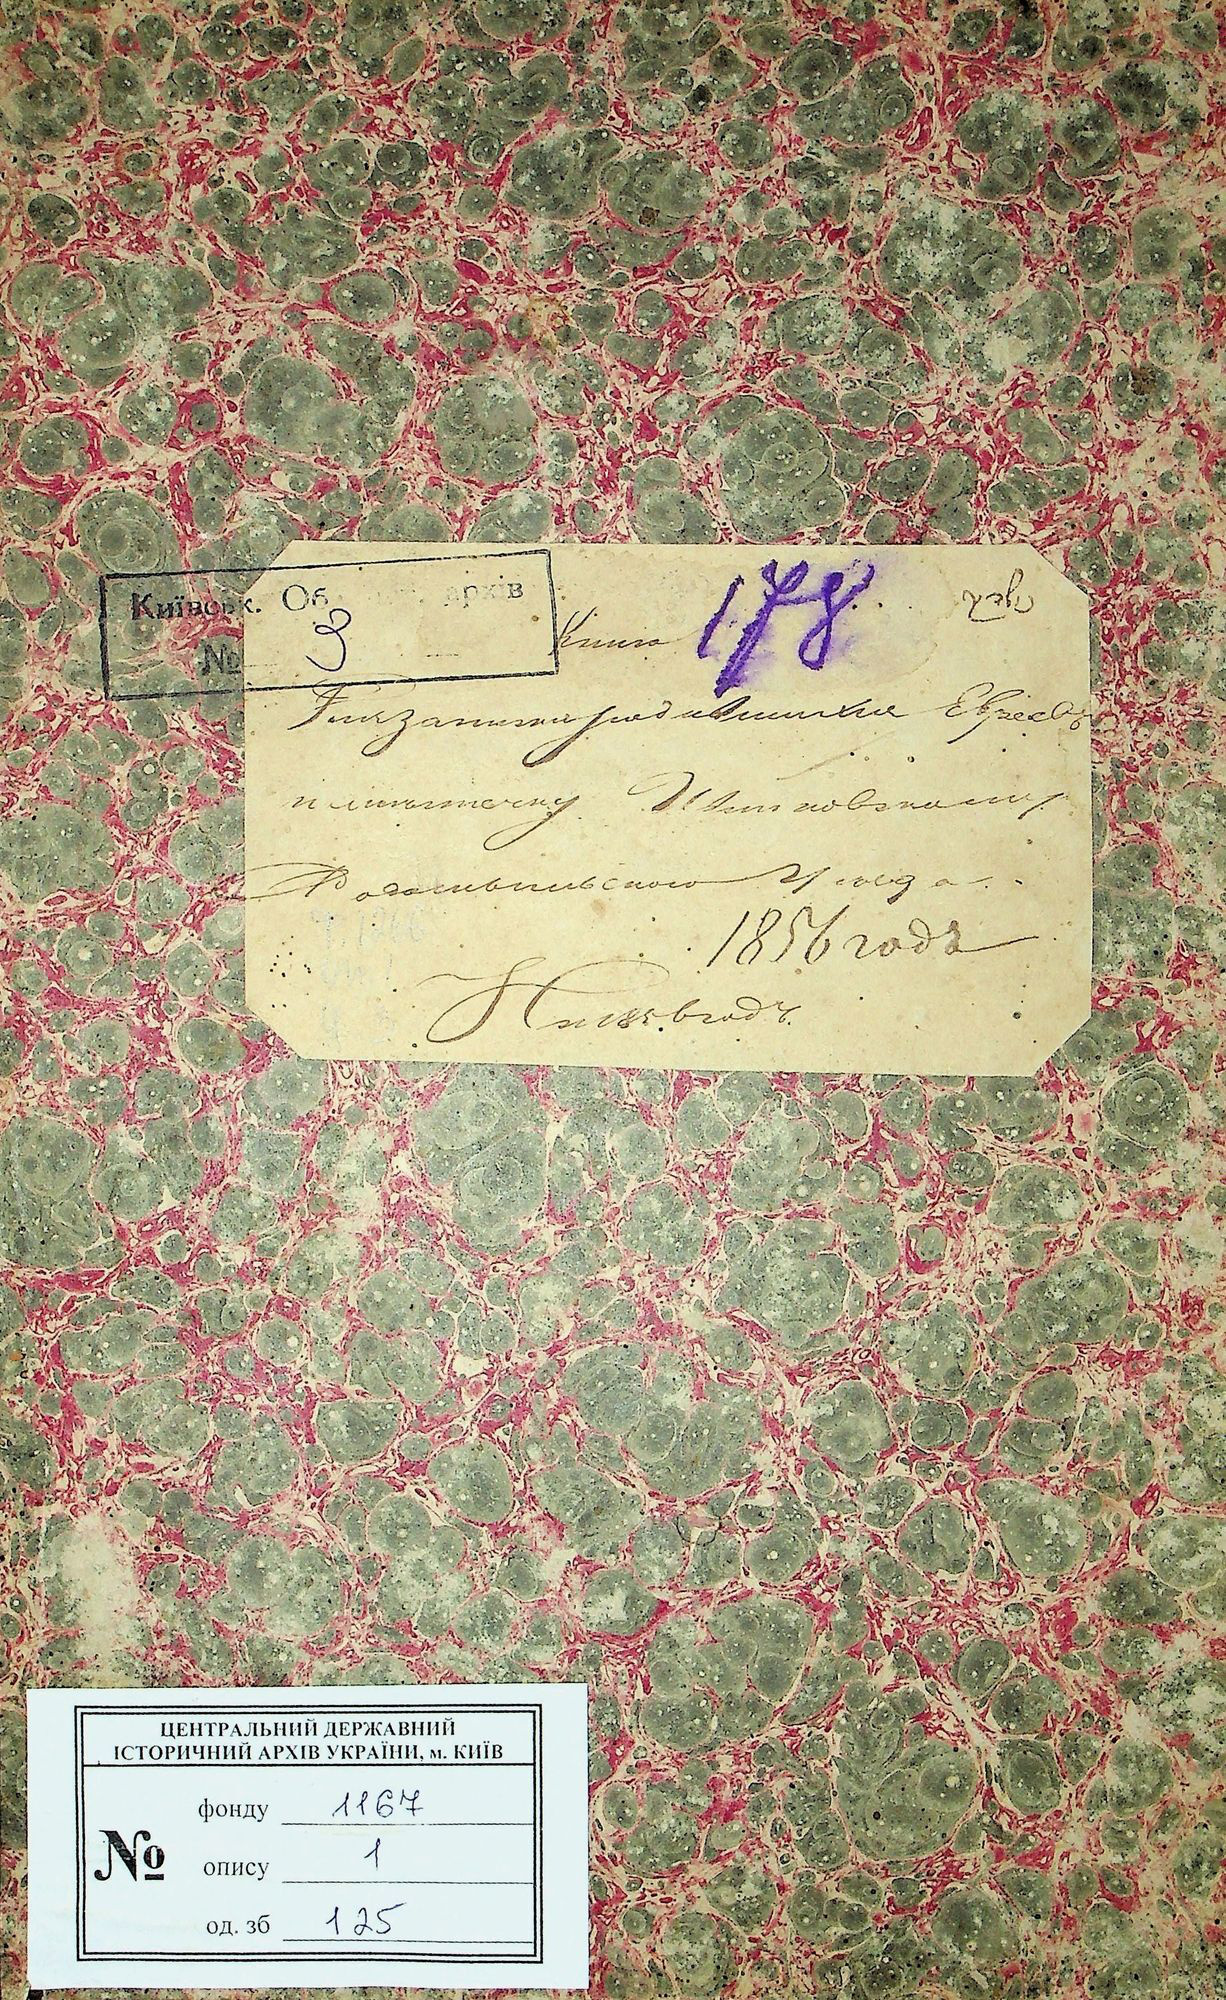 Київськ. Об архів
№ 3
Книга
178
Для записки родившихся Евреевъ
по местечку
Васильковского Уезда
1856 года
ЦЕНТРАЛЬНИЙ ДЕРЖАВНИЙ
ІСТОРИЧНИЙ АРХІВ УКРАЇНИ, м. КИЇВ
№
фонду 1167
опису 1
од. зб 125